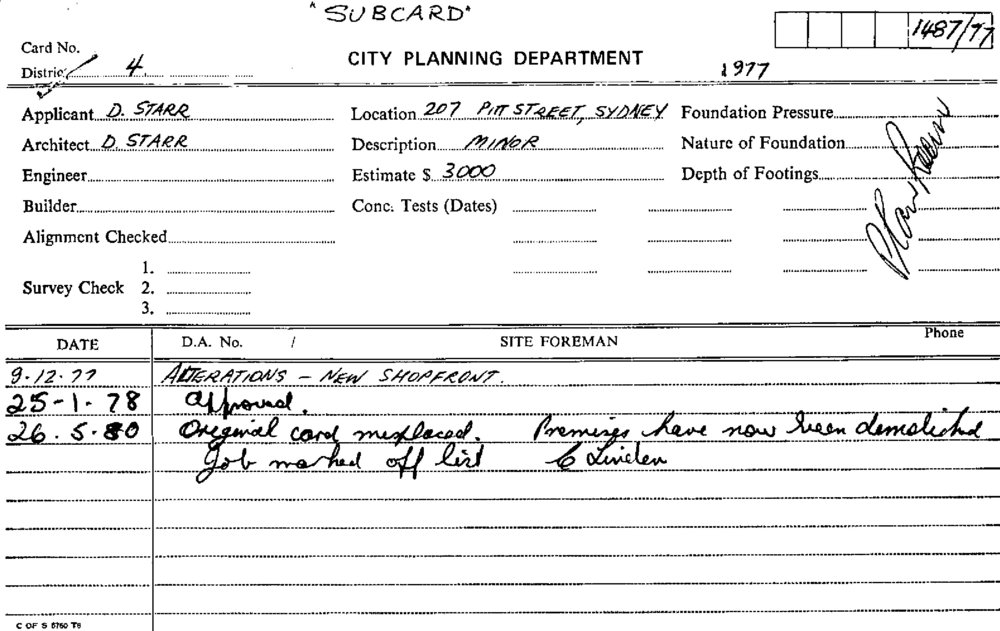 "SUBCARD"
1487/77
Card No.
District 4
CITY PLANNING DEPARTMENT
1977
Applicant D. STARR
Location 207 PITT STREET, SYDNEY
Foundation Pressure
Architect D. STARR
Description MINOR
Nature of Foundation
Engineer
Estimate $ 3000
Depth of Footings
Builder
Conc. Tests (Dates)
Alignment Checked
1.
Survey Check 2.
3.
DATE D.A. No. / SITE FOREMAN Phone
9.12.77 ALTERATIONS - NEW SHOPFRONT.
25-1-78 Approved.
26.5.80 Original card misplaced. Premises have now been demolished
Job marked off list C Linden
C OF S 6760 T6